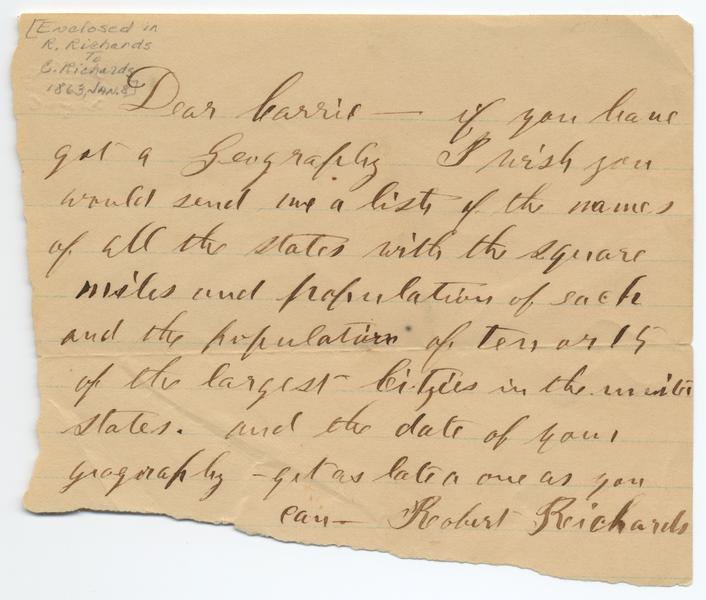 [Enclosed in
R. Richards
To
C. Richards
1863, Jan. 8]
Dear Carrie — if you have
got a Geography I wish you
would send me a list of the names
of all the states with the square
miles and population of each
and the population of ten or 15
of the largest Cities in the unite
states. and the date of your
geography - get as late a one as you
can — Robert Reichards